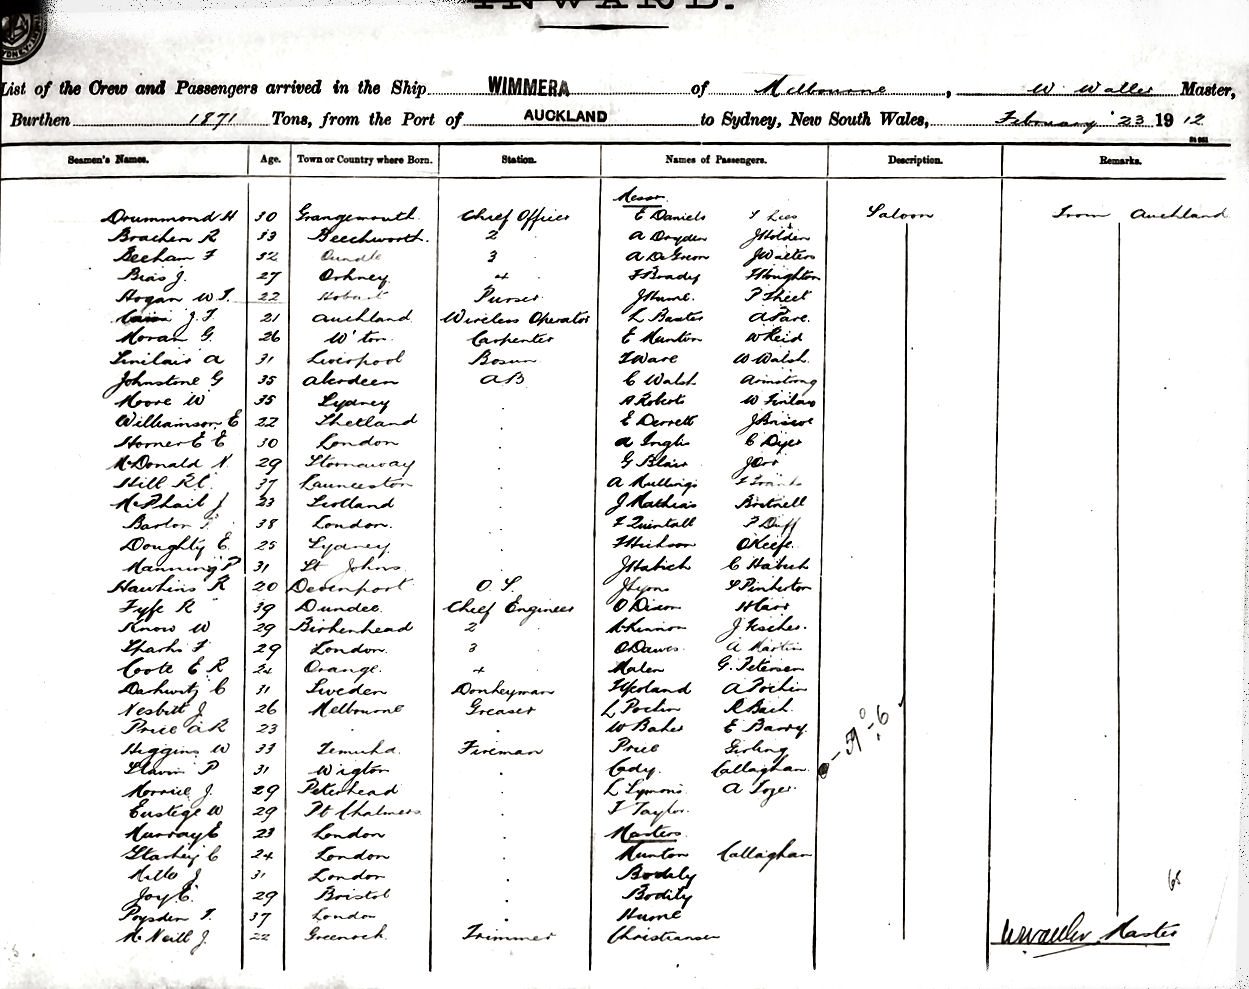 INWARD.
List of the Crew and Passengers arrived in the Ship WIMMERA of Melbourne, W Waller Master,
Burthen 1871 Tons, from the Port of AUCKLAND to Sydney, New South Wales, February 23 1912
Seamen's Names. Age. Town or Country where Born. Station. Names of Passengers. Description. Remarks.
Messr
Drummond H 30 Grangemouth Chief Officer E Daniels Lees Saloon From Auckland
Bracken R 33 Beechworth. 2 A Dryden J Holden
Beecham F 32 Oundle 3 J Walters
Bias J. 27 Orkney 4 F Brady F Houghton
Hogan W T. 22 Hobart Purser J Hume. P Skeet
J. T. 21 Auckland Wireless Operator L Baxter A Pare.
Moran G. 26 W'ton. Carpenter E Munton W Reid
Sinclair A 31 Liverpool Bosun F Ware W Walsh.
Johnstone G 35 Aberdeen A B C Walsh Armstrong
Moore W 35 Sydney . A Roberts W Finlay
Williamson E 22 Shetland . E Derrett J Briscoe
Horner E E 30 London . A Inglis C Dyer
McDonald N. 29 Stornaway . G Blair J Orr
Hill R C. 37 Launceston . A Mullings
McPhail J 23 Scotland . J Mathias Bretnell
Barton F. 38 London. . F Quintall P Duff
Doughty E. 25 Sydney. . F Hickson O'Keefe.
Manning P 31 St Johns. . J Habich C Habich
Hawkins R 20 Devonport O. S. J Lyons S Pinkerton
Fyfe R 39 Dundee. Chief Engineer O Dixon H Carr
Know W 29 Birkenhead 2 McKinnon J Fischer.
Sparks F 29 London. 3 O Dawes A Martin
Coote E R 24 Orange. 4 Malen G. Petersen
Darkwitz C 31 Sweden Donkeyman A Pochin
Nesbitt J 26 Melbourne Greaser L Pochin R Bach.
Price A R 23 . . W Baker E Barry.
Higgins W 33 Temuka. Fireman Price Girling
Slavin P 31 Wigton . Cady. Callaghan.
Morrice J. 29 Peterhead . L Symons A Tozer
Eustege W 29 Pt Chalmers . F Taylor.
Murray E 23 London . Masters.
Starkey C 24 London . Munton Callaghan
Mills J 31 London . Bodily
Joy E. 29 Bristol . Bodily
Poysden T. 37 London . Hume
McNeill J. 22 Greenock. Trimmer Christiansen
W Waller Master